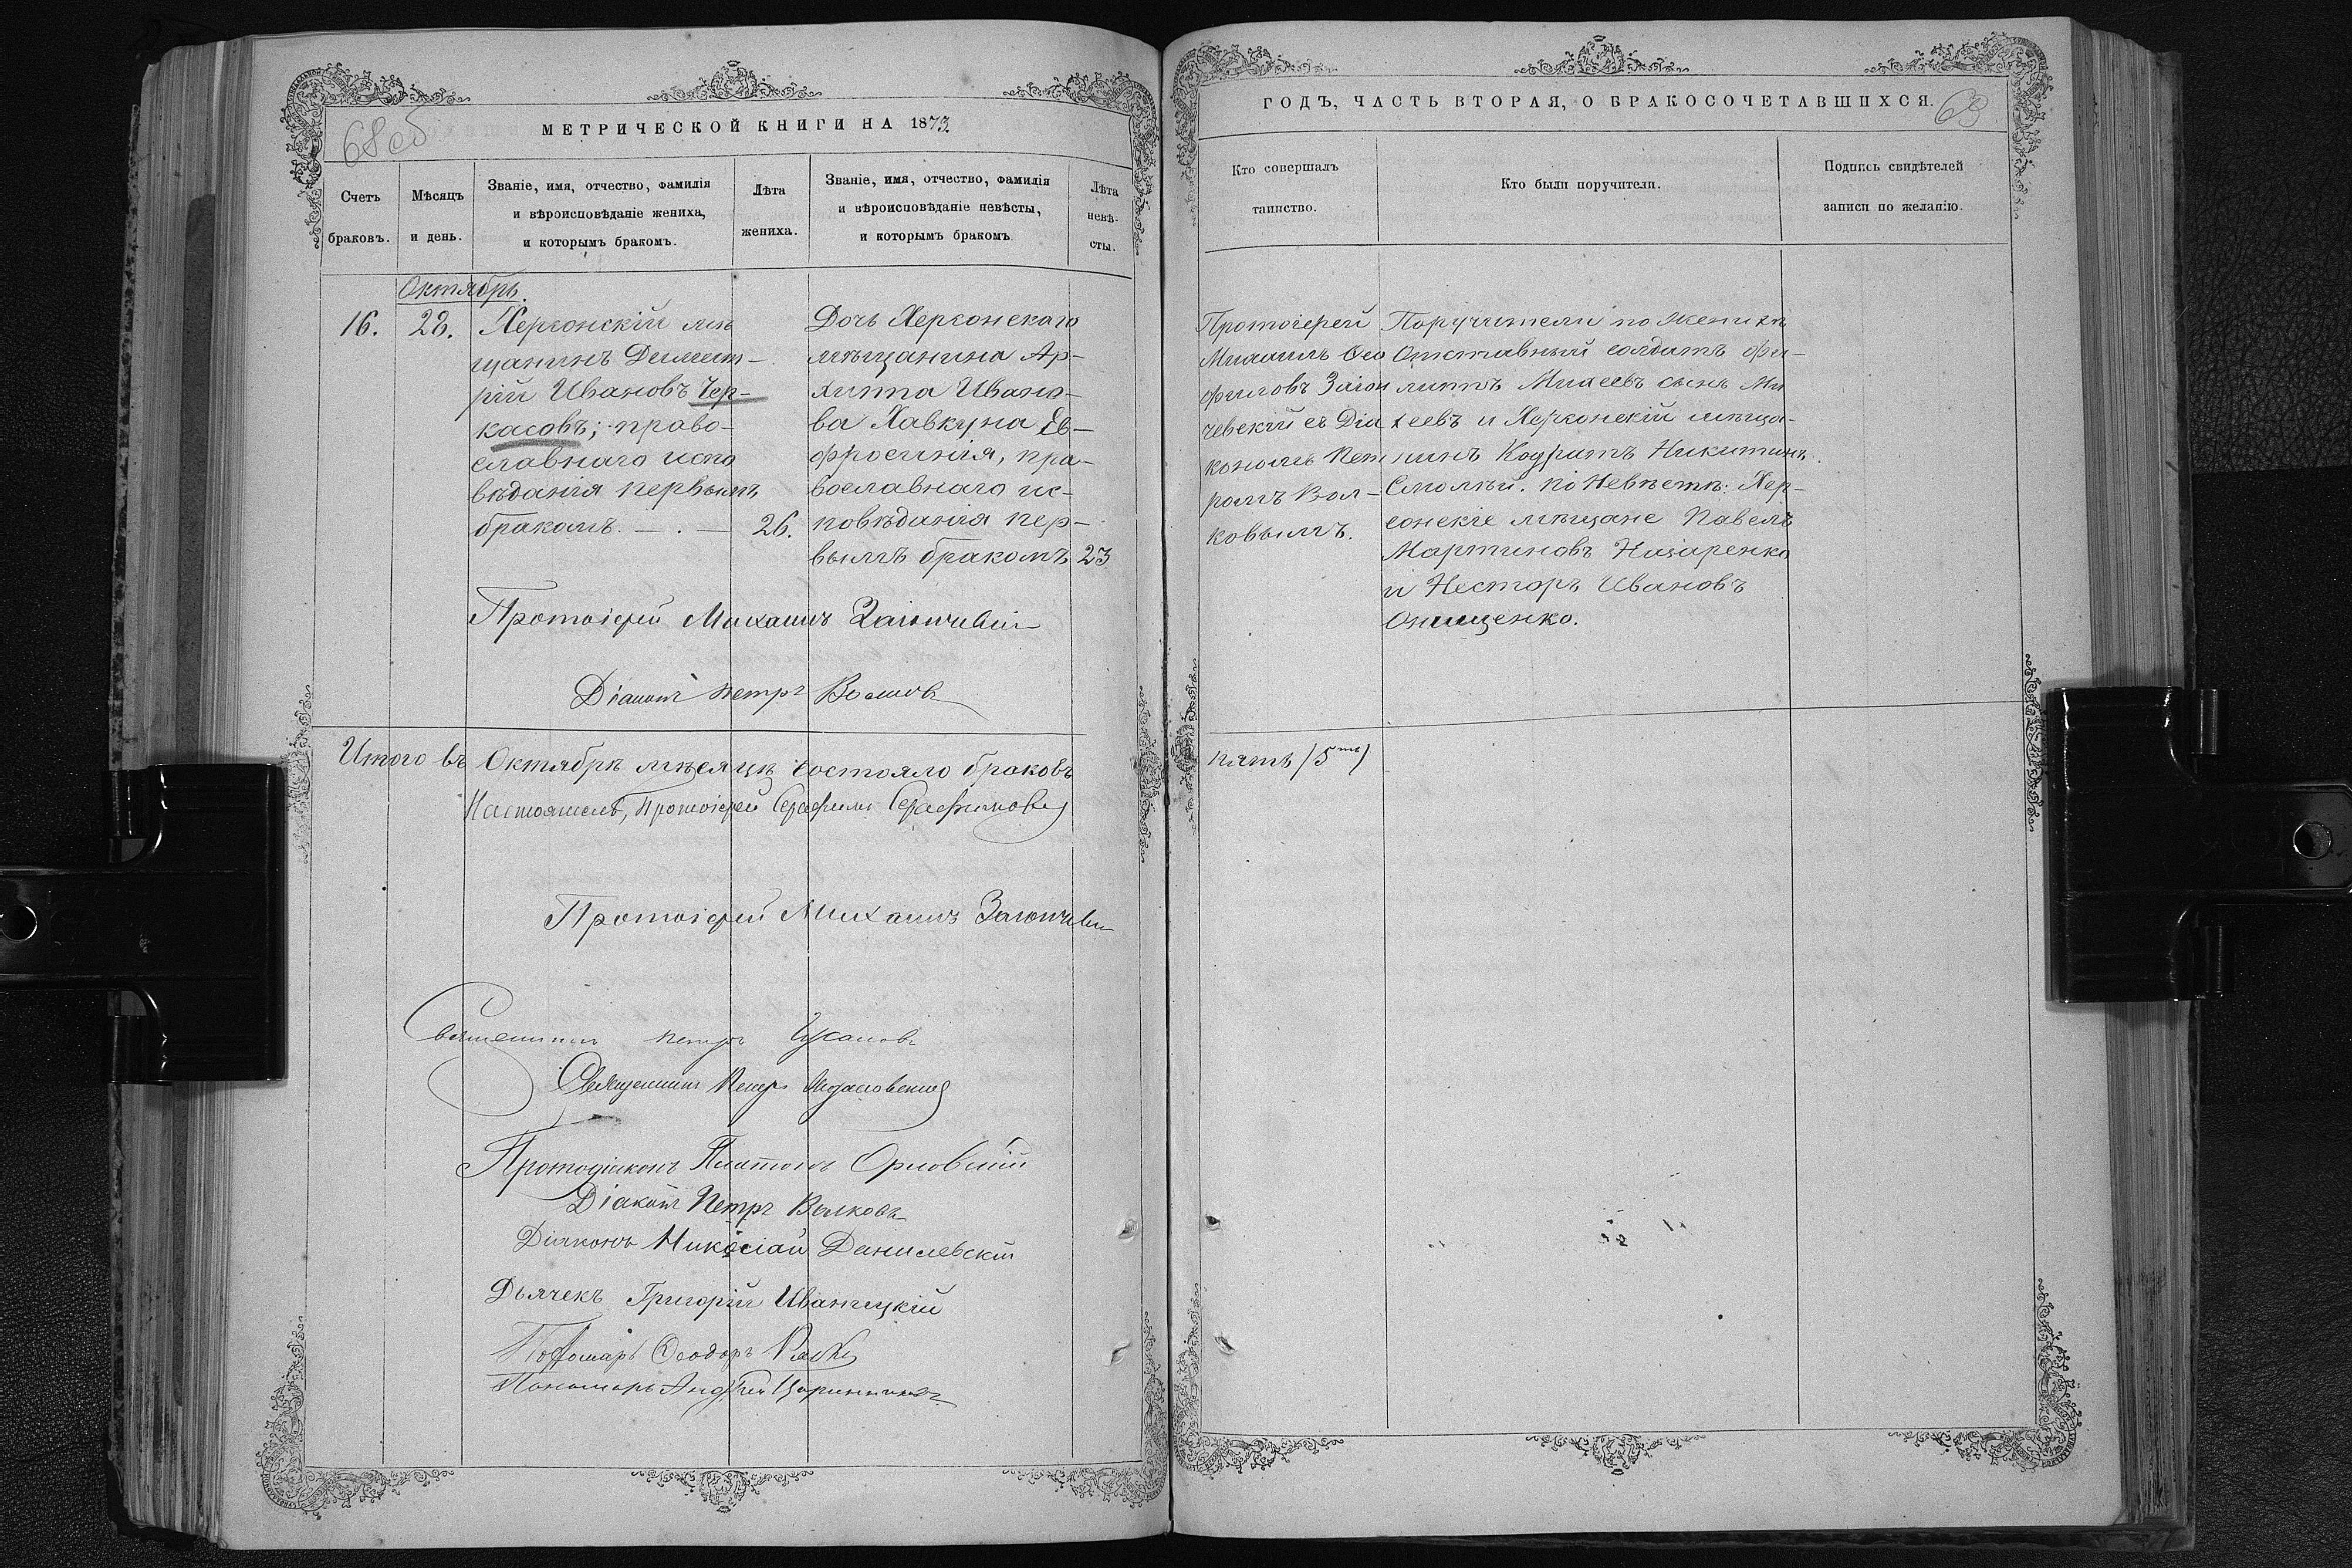 68об
МЕТРИЧЕСКОЙ КНИГИ НА 1873
Счетъ браковъ.
Мѣсяцъ и день.
Званіе, имя, отчество, фамилія
и вѣроисповѣданіе жениха,
и которымъ бракомъ.
Лѣта жениха.
Званіе, имя, отчество, фамилія
и вѣроисповѣданіе невѣсты,
и которымъ бракомъ
Лѣта невѣ-
сты.
Октябрь.
16.
28.
Херсонскій мѣ
щанинъ Димит-
рій Ивановъ Чер-
касовъ; право-
славнаго испо
вѣданія первымъ
бракомъ. — . — 26.
Дочь Херсонскаго
мѣщанина Ар-
хиппа Ивано-
ва Хавкуна Ев-
фросинія, пра-
вославнаго ис-
повѣданія пер-
вымъ бракомъ 23
Протоіерей Михаилъ Заіончевскій
Діаконъ Петръ Волковъ
Итого въ Октябрѣ мѣсяцѣ состояло браковъ
Настоятель, Протоіерей Серафимъ Серафимовъ
Протоіерей Михаилъ Заіончевскій
Священникъ Петръ
Священникъ Петръ
Протодіаконъ Платонъ Орловскій
Діаконъ Петръ Волковъ
Діаконъ Николай Данилевскій
Дьячекъ Григорій Иваницкій
Пономарь Ѳеодоръ
Пономарь Андрей
ГОДЪ, ЧАСТЬ ВТОРАЯ, О БРАКОСОЧЕТАВШИХСЯ.
69
Кто совершалъ
таинство.
Кто были поручители.
Подпись свидѣтелей
записи по желанію.
Протоіерей
Михаилъ Ѳео
филовъ Заіон
чевскій съ Діа
кономъ Пет
ромъ Вол-
ковымъ.
Поручители по женихѣ
Отставный солдатъ Фи-
липпъ Михеевъ сынъ Ми
хеевъ и Херсонскій мѣща-
нинъ Кодратъ Никитинъ
Смолѣй. по Невѣстѣ: Хер-
сонскіе мѣщане Павелъ
Мартиновъ Назаренко
и Несторъ Ивановъ
Онищенко.
пять (5ть)